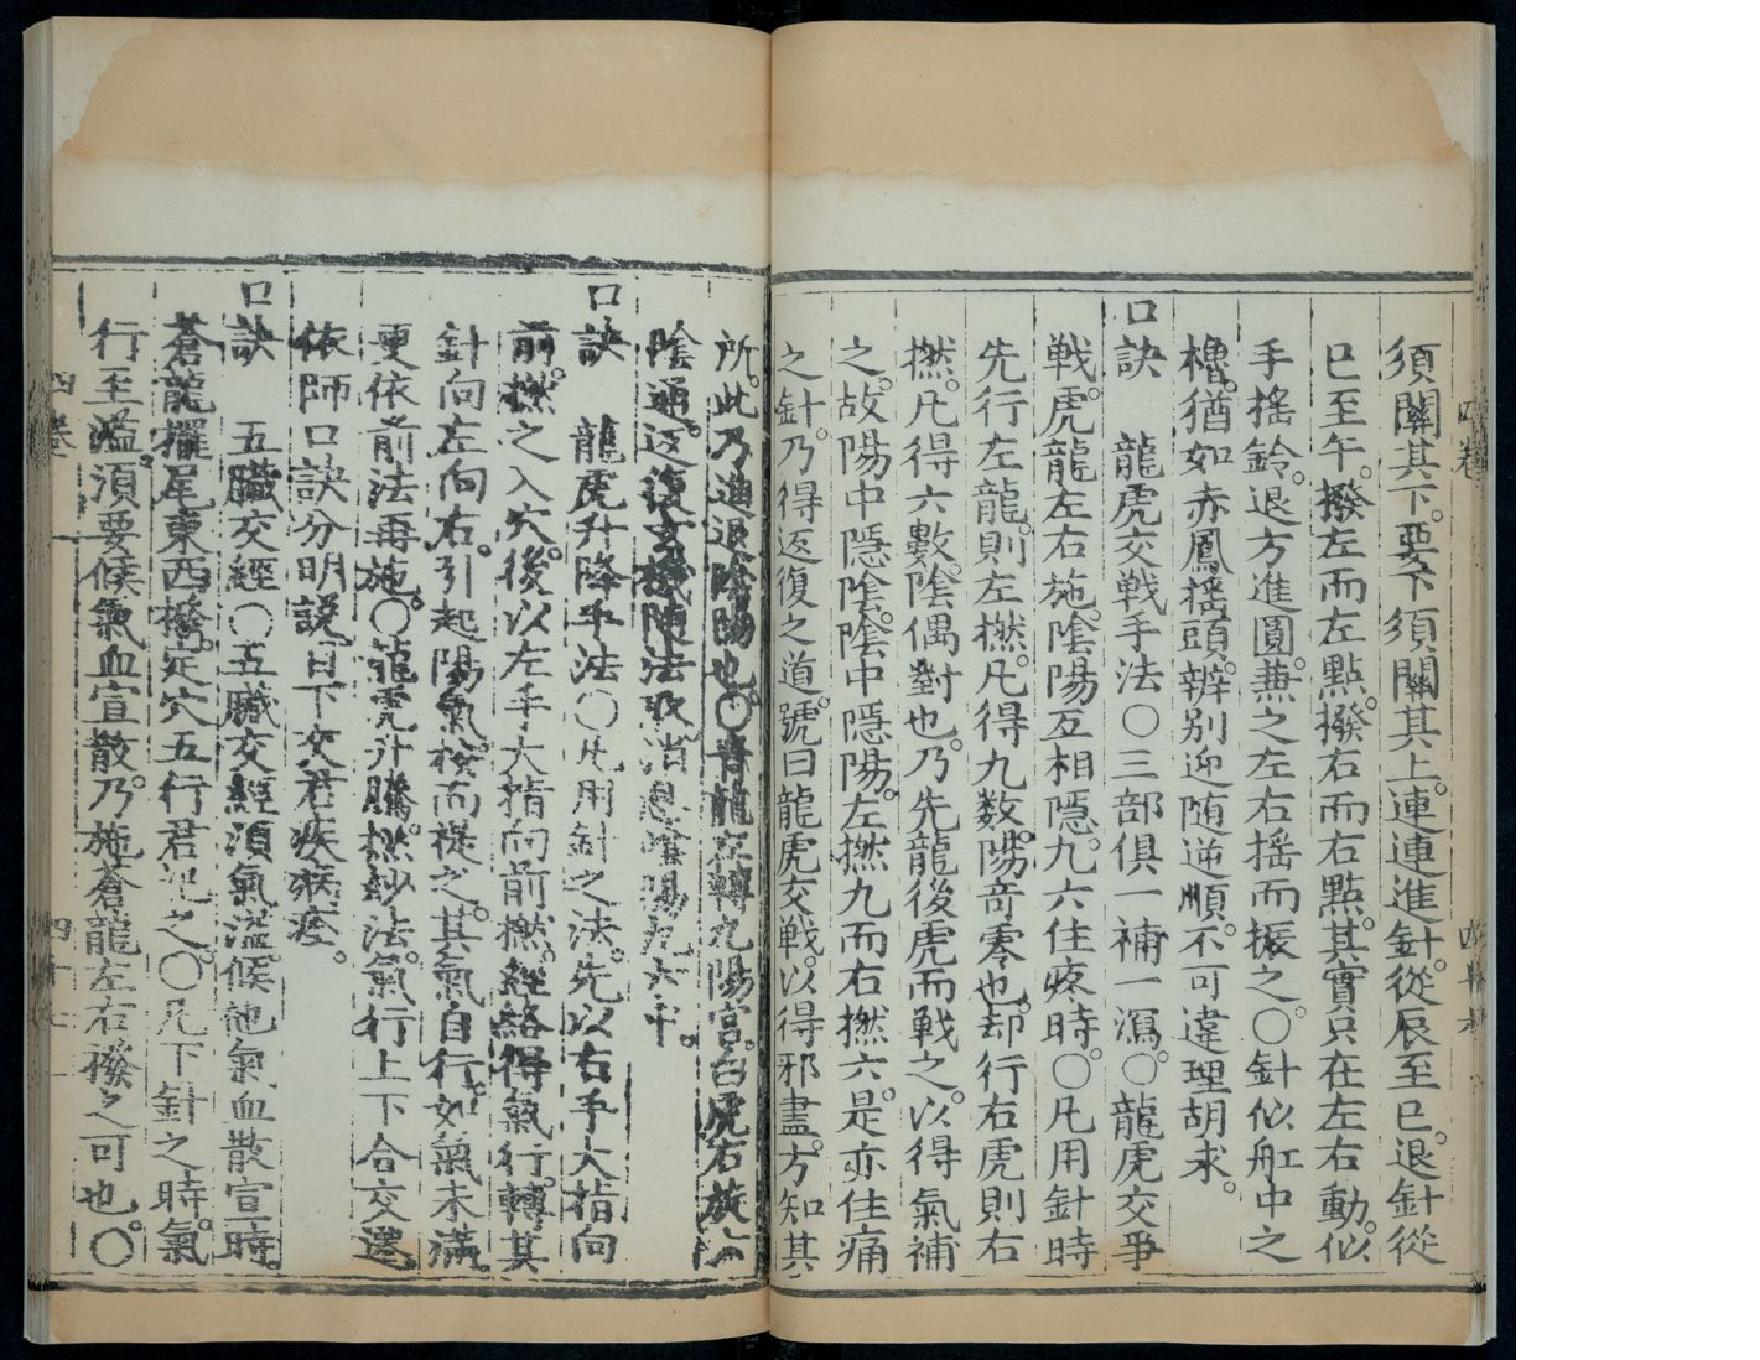 須關其下。要下須關其上。連連進針。從辰至巳。退針從
巳至午。撥左而左點。撥右而右點。其實只在左右動。似
手搖鈴。退方進圓。蕪之左右搖而振之。〇針似舡中之
櫓。猶如赤鳳搖頭。辨别迎随逆順。不可違理胡求。
口訣　龍虎交戰手法〇三部俱一補一瀉。〇龍虎交爭
戰。虎龍左右施。陰陽互相隱。九六住疼時。〇凡用針時
先行左龍。則左撚。凡得九數。陽竒零也。却行右虎則右
撚。凡得六數。陰偶對也。乃先龍後虎而戰之。以得氣補
之。故陽中隱陰。陰中隱陽。左撚九而右撚六。是亦住痛
之針。乃得返復之道。號曰龍虎交戰。以得邪盡。方知其
所。此乃進退陰陽也。〇青龍左轉九陽宮。白虎右旋六
陰通。返復玄機随法取。消息陰陽九六中。
口訣　龍虎升降手法〇凡用針之法。先以右手大指向
前。撚之入穴後。以左手大指向前撚。經絡得氣行。轉其
針向左向右。引起陽氣。按而提之。其氣自行。如氣未滿。
更依前法再施。〇龍虎升騰撚妙法。氣行上下合交遷
依師口訣分明説。目下交君疾病痊。
口訣　五臟交經〇五臟交經須氣溢。候他氣血散宣時。
蒼龍擺尾東西撥。定穴五行君記之。〇凡下針之時。氣
行至溢。須要候氣血宣散。乃施蒼龍左右撥之可也。〇
四卷